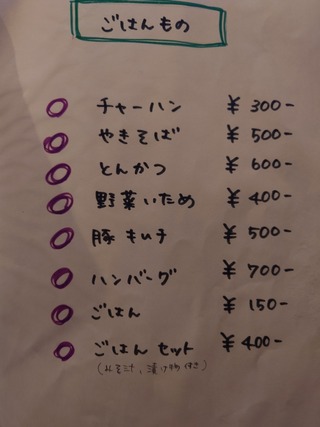 ごはんもの
チャーハン ¥300-
やきそば ¥500-
とんかつ ¥600-
野菜いため ¥400-
豚キムチ ¥500-
ハンバーグ ¥700-
ごはん ¥150-
ごはんセット ¥400-
(みそ汁,漬け物付き)